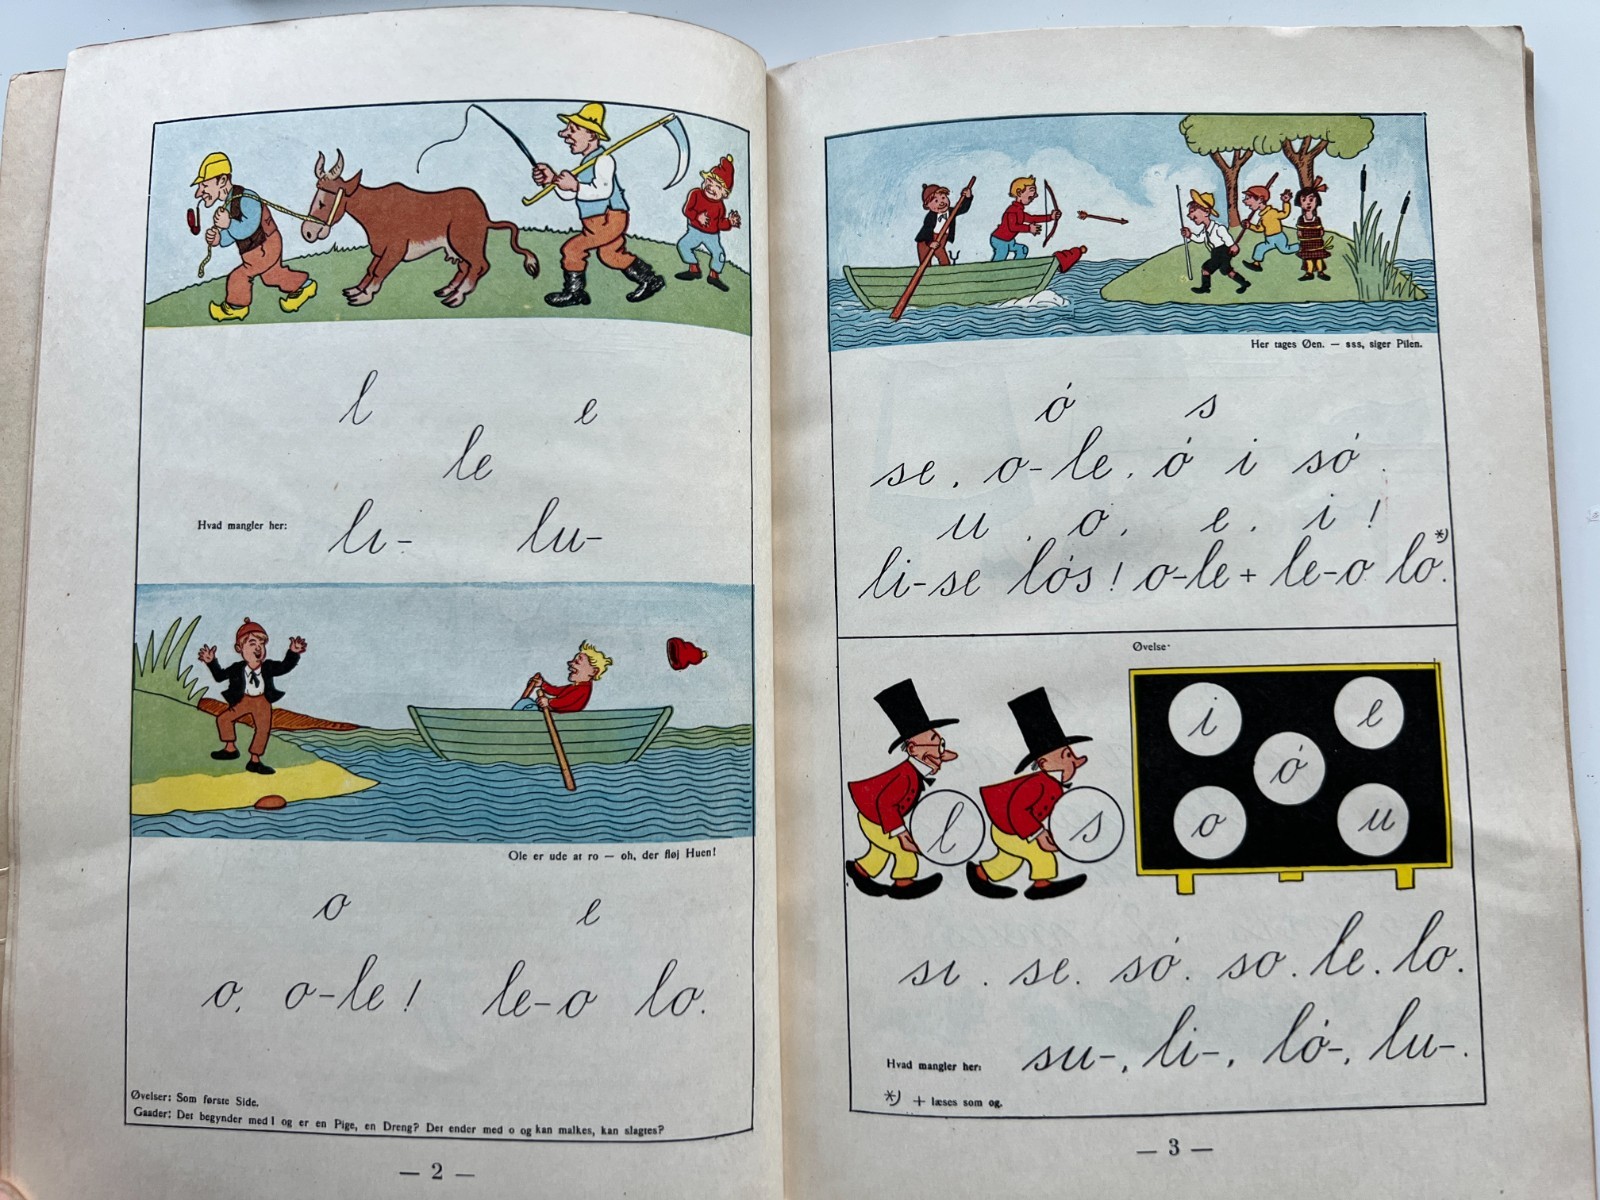 l e
le
Hvad mangler her: lı- lu-
Ole er ude at ro — oh, der fløj Huen!
o e
o, o-le! le-o lo.
Øvelser: Som første Side.
Gaader: Det begynder med l og er en Pige, en Dreng? Det ender med o og kan malkes, kan slagtes?
— 2 —
Her tages Øen. — sss, siger Pilen.
ó s
se, o-le, ó i só.
u, o, e, i!
li-se lós! o-le + le-o lo. *)
Øvelse·
i e
ó
l s o u
sı. se. só. so. le. lo.
Hvad mangler her: su-, li-, ló-, lu-.
*) + læses som og.
— 3 —